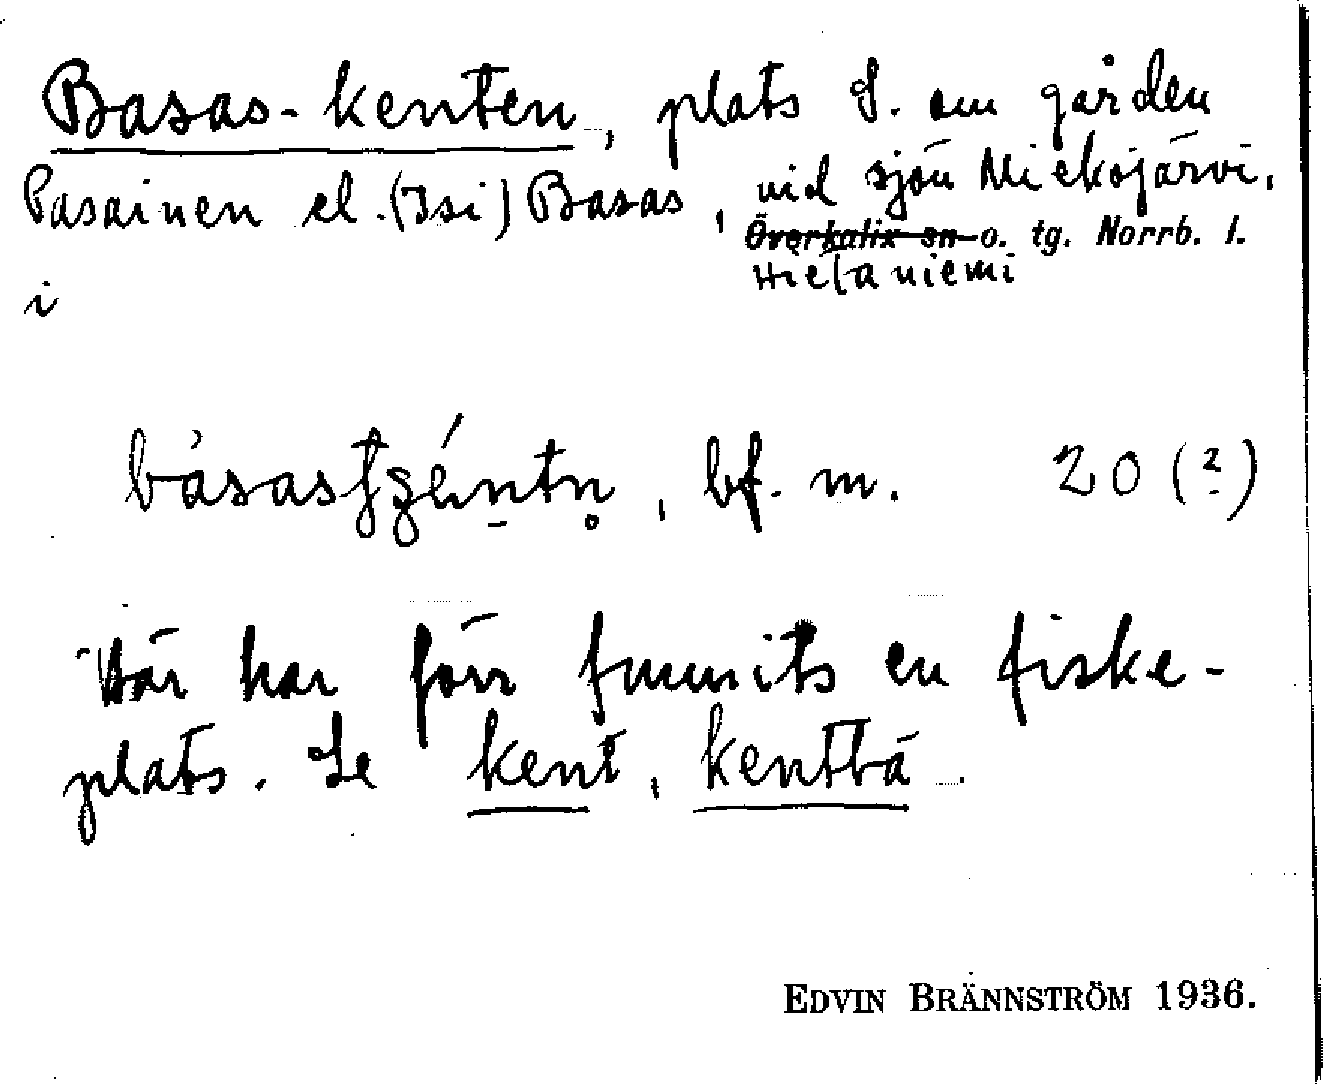 Basas-kenten, plats S. om gården
Pasainen el. (Isi) Basas, vid sjön Miekojärvi,
Överkalix sn o. tg. Norrb. l.
Hietaniemi
i
bf. m. 20 (?)
Här har förr funnits en fiske-
plats. Se kent, kenttä.
EDVIN BRÄNNSTRÖM 1936.